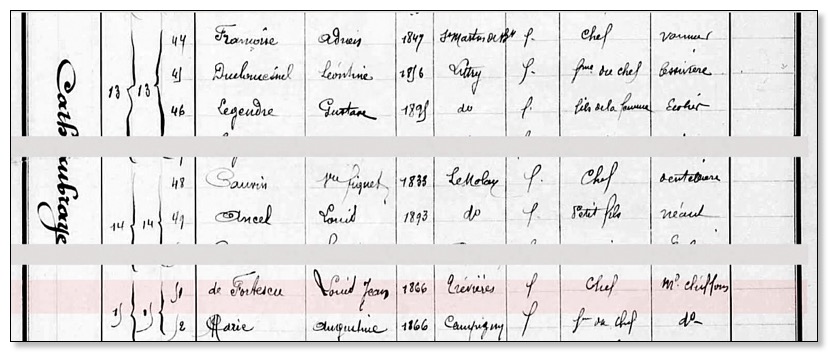 44 Françoise Adrien 1847 St Martin de Bl f. Chef vannier
13 13 45 Duchemesnil Léontine 1856 Littry f. fme du chef lessivière
46 Legendre Gustave 1895 do f. fils de la femme Ecolier
48 Cauvin Vve Piquet 1833 Le Molay f. Chef dentelière
14 14 49 Ancel Louis 1893 do f. Petit fils néant
51 de Fortescu Louis Jean 1866 Trévières f Chef Md chiffons
15 15 52 Marie Augustine 1866 Campigny f fme du chef do